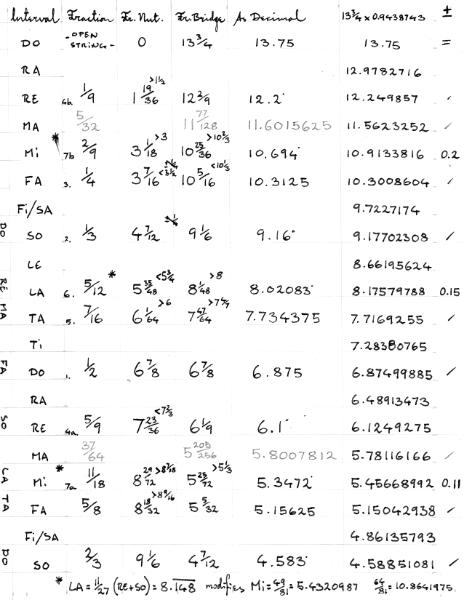 Interval Fraction Fr. Nut. Fr. Bridge As Decimal 13¾ x 0.9438743 ±
DO -OPEN STRING- 0 13¾ 13.75 13.75 =
RA 12.9782716
RE 6b. 1/9 1 19/36 >1½ 12 2/9 12.2̇ 12.249857 ✓
MA 5/32 11 77/128 11.6015625 11.5623252 ✓
* Mi 7b 2/9 3 1/18 >3 10 25/36 >10⅔ 10.694̇ 10.9133816 0.2
FA 3. ¼ 3 7/16 <3½ 10 5/16 <10⅓ 10.3125 10.3008604 ✓
Fi/SA 9.7227174
DO SO 2. ⅓ 4 7/12 9 1/6 9.16̇ 9.17702308 ✓
LE 8.66195624
RE LA 6. 5/12 * 5 35/48 <5¾ 8 1/48 >8 8.02083̇ 8.17579788 0.15
MA TA 5. 7/16 6 1/64 >6 7 47/64 7.734375 7.7169255 ✓
Ti 7.28380765
FA DO 1. ½ 6 7/8 6 7/8 6.875 6.87499885 ✓
RA 6.48913473
SO RE 4a. 5/9 7 23/36 <7⅔ 6 1/9 6.1̇ 6.1249275
MA 37/64 5 205/256 5.8007812 5.78116166 ✓
LA * Mi 7a 11/18 8 29/72 5 25/72 >5⅓ 5.3472̇ 5.45668992 0.11
TA FA 5/8 8 19/32 5 5/32 5.15625 5.15042938 ✓
Fi/SA 4.86135793
DO SO ⅔ 9 1/6 4 7/12 4.583̇ 4.58851081 ✓
* LA = 11/27 (RE+SO) = 8.148 modifies Mi: 49/81 = 5.4320987 64/81 = 10.8641975